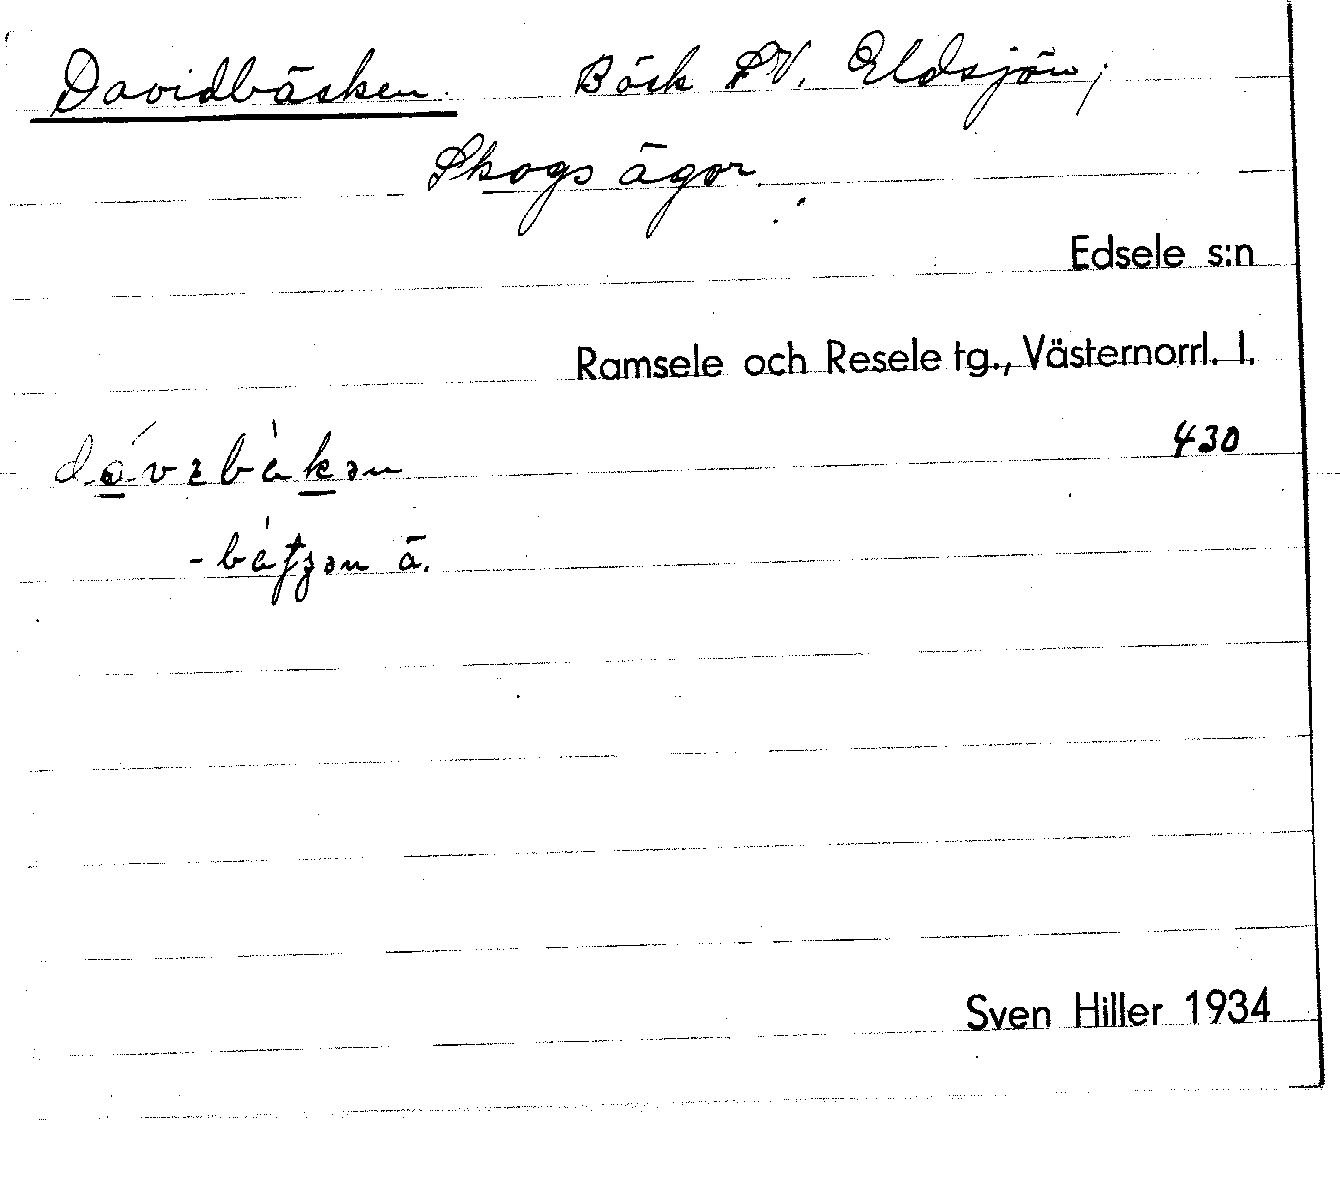 Davidbäcken. Bäck SV. Eldsjön;
Skogs ägor.
Edsele s:n
Ramsele och Resele tg., Västernorrl. l.
430
ä.
Sven Hiller 1934